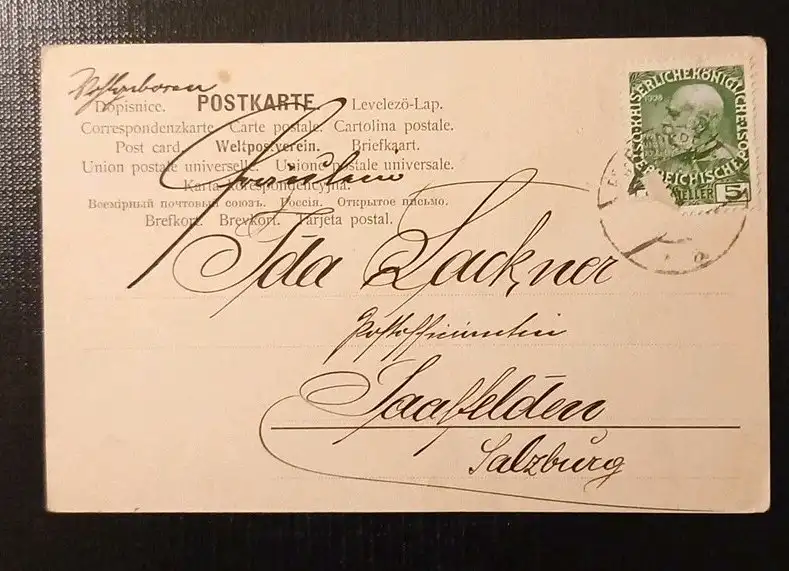 Wohlgeboren
Dopisnice. POSTKARTE. Levelező-Lap.
Correspondenzkarte. Carte postale. Cartolina postale.
Post card. Weltpostverein. Briefkaart.
Union postale universelle. Unione postale universale.
Karta korespondencyjna.
Всемірный почтовый союзъ. Россія. Открытое письмо.
Brefkort. Brevkort. Tarjeta postal.
Fräulein
Ida Lackner
Postoffiziantin
Saalfelden
Salzburg
KAISERLICHE KÖNIGLICHE
ÖSTERREICHISCHE POST
1908
HELLER 5